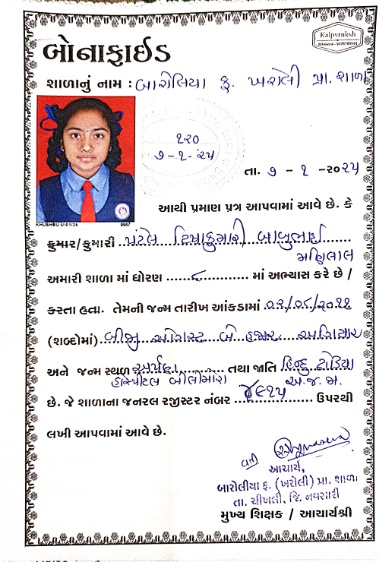 Kalpvruksh
બોનાફાઈડ
શાળાનું નામ : બારોલિયા ફ. ખરોલી પ્રા. શાળા
૧૨૦
૭-૧-૨૫
તા. ૭ - ૧ - ૨૦૨૫
આથી પ્રમાણ પત્ર આપવામાં આવે છે. કે
કુમાર/કુમારી પટેલ દિયાકુમારી બાબુભાઈ
મણિલાલ
અમારી શાળા માં ધોરણ ૮ માં અભ્યાસ કરે છે /
કરતા હતા. તેમની જન્મ તારીખ આંકડામાં ૦૨/૦૮/૨૦૧૧
(શબ્દોમાં) બીજી ઓગસ્ટ બે હજાર અગિયાર
અને જન્મ સ્થળ તથા જાતિ હિન્દુ ઢોડિયા
હોસ્પીટલ બીલીમોરા અ.જ.જા.
છે. જે શાળાના જનરલ રજીસ્ટર નંબર ૪૯૧૫ ઉપરથી
લખી આપવામાં આવે છે.
આચાર્ય,
બારોલીયા ફ. (ખરોલી) પ્રા. શાળા
તા. ચીખલી, જિ. નવસારી
મુખ્ય શિક્ષક / આચાર્યશ્રી